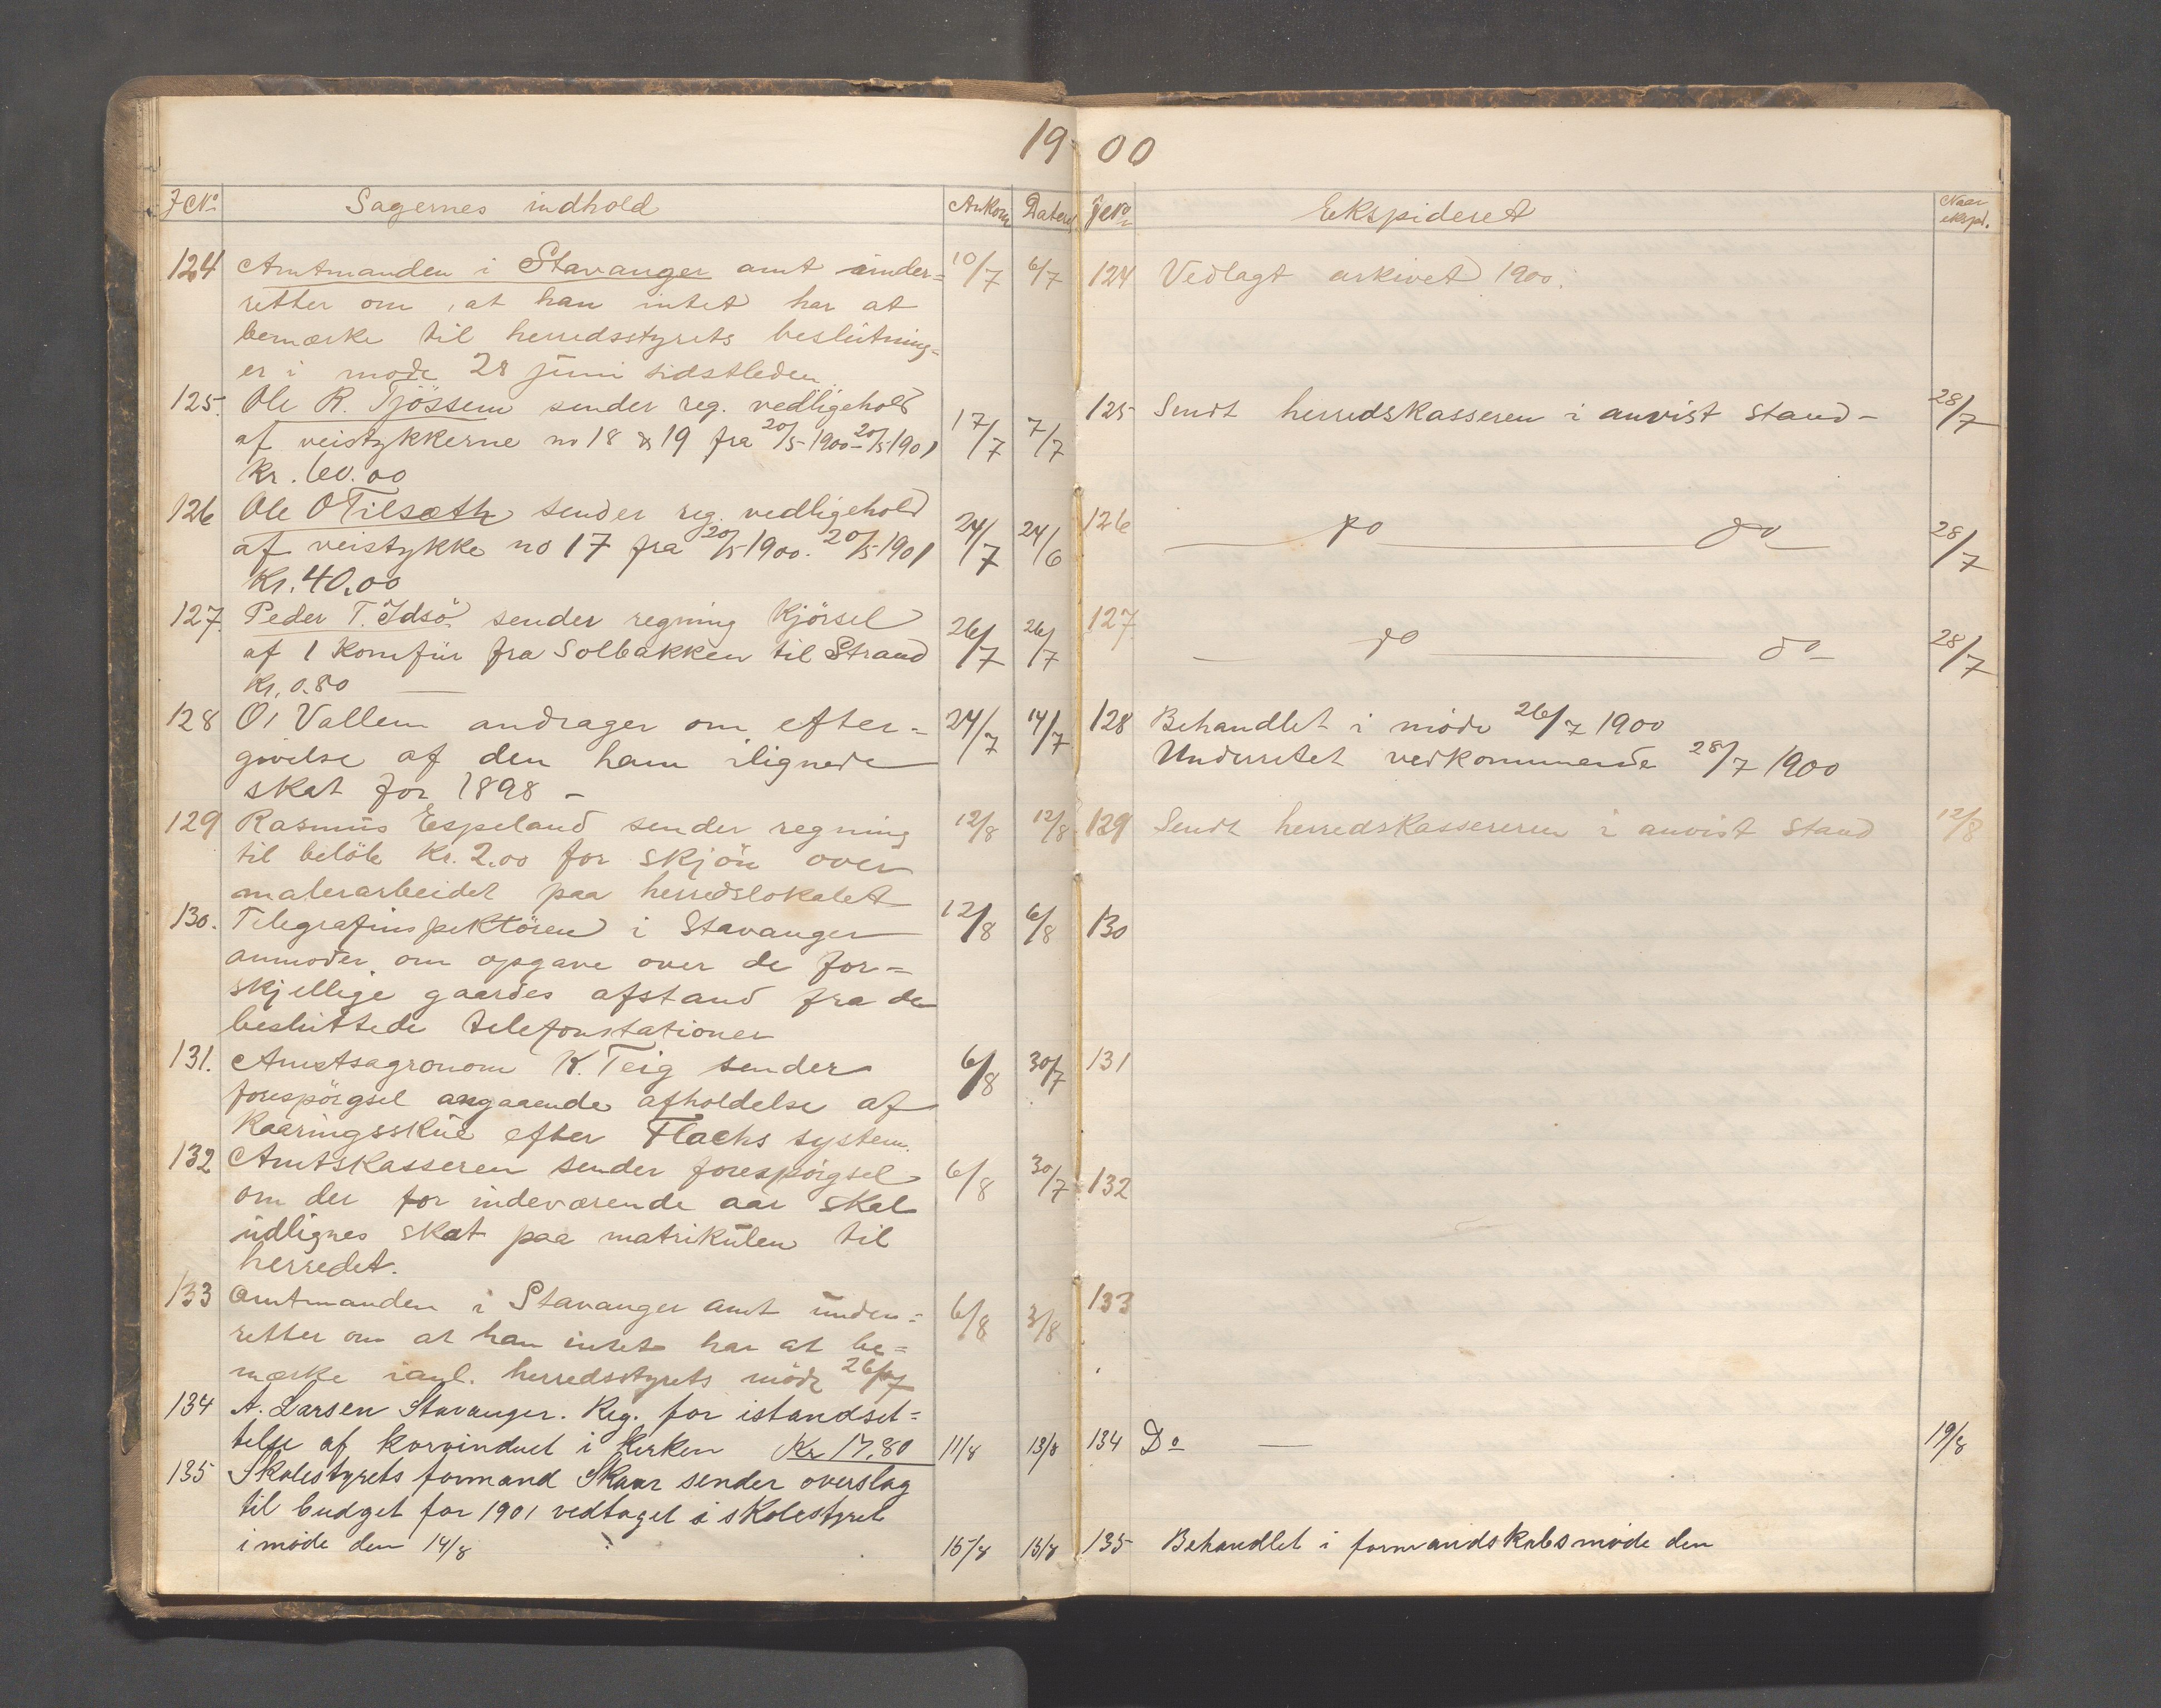 19 00
J No Sagernes indhold Ankom Dateret
124 Amtmanden i Stavanger amt under= 10/7 6/7
retter om, at han intet har at
bemærke til herredsstyrets beslutning=
er i møde 28 juni sidstleden
125. Ole R. Tjössem sender reg. vedligehold
af veistykkerne no 18 & 19 fra 20/5 1900 - 20/5 1901 17/7 7/7
Kr. 60.00
126 Ole O Tilsæth sender reg. vedligehold
af veistykke no 17 fra 20/5 1900. 20/5 1901 24/7 24/6
Kr. 40.00
127. Peder T. Idsö sender regning Kjörsel
af 1 Komfür fra Solbakken til Strand 26/7 26/7
Kr. 0.80
128 O. Vallem andrager om efter= 24/7 14/7
givelse af den ham ilignede
skat for 1898 -
129 Rasmus Espeland sender regning 12/8 12/8
til beløb Kr. 2.00 for skjön over
malerarbeidet paa herredslokalet
130. Telegrafinspektören i Stavanger 12/8 6/8
anmoder om opgave over de for=
skjellige gaardes afstand fra de
besluttede telefonstationer
131. Amtsagronom K. Teig sender 6/8 30/7
forespörgsel angaaende afholdelse af
Kaaringsskue efter Flachs system.
132 Amtskasseren sender forespörgsel 6/8 30/7
om der for indeværende aar skal
udlignes skat paa matrikulen til
herredet.
133 Amtmanden i Stavanger amt under= 6/8 3/8
retter om at han intet har at be=
mærke i anl. herredsstyrets möde 26/7
134 A. Larsen Stavanger. Reg. for istandset=
telse af korvinduet i Kirken Kr 17.80 11/8 13/8
135 Skolestyrets formand Skaar sender overslag
til budget for 1901 vedtaget i skolestyret
i møde den 14/8 15/8 15/8
J No Ekspideret Naar ekspd.
124 Vedlagt arkivet 1900.
125 Sendt herredskasseren i anvist stand - 28/7
126 do do 28/7
127 do do 28/7
128 Behandlet i møde 26/7 1900
Underretet vedkommende 28/7 1900
129 Sendt herredskassereren i anvist stand 12/8
130
131
132
133
134 Do — 19/8
135 Behandlet i formandskabsmøde den